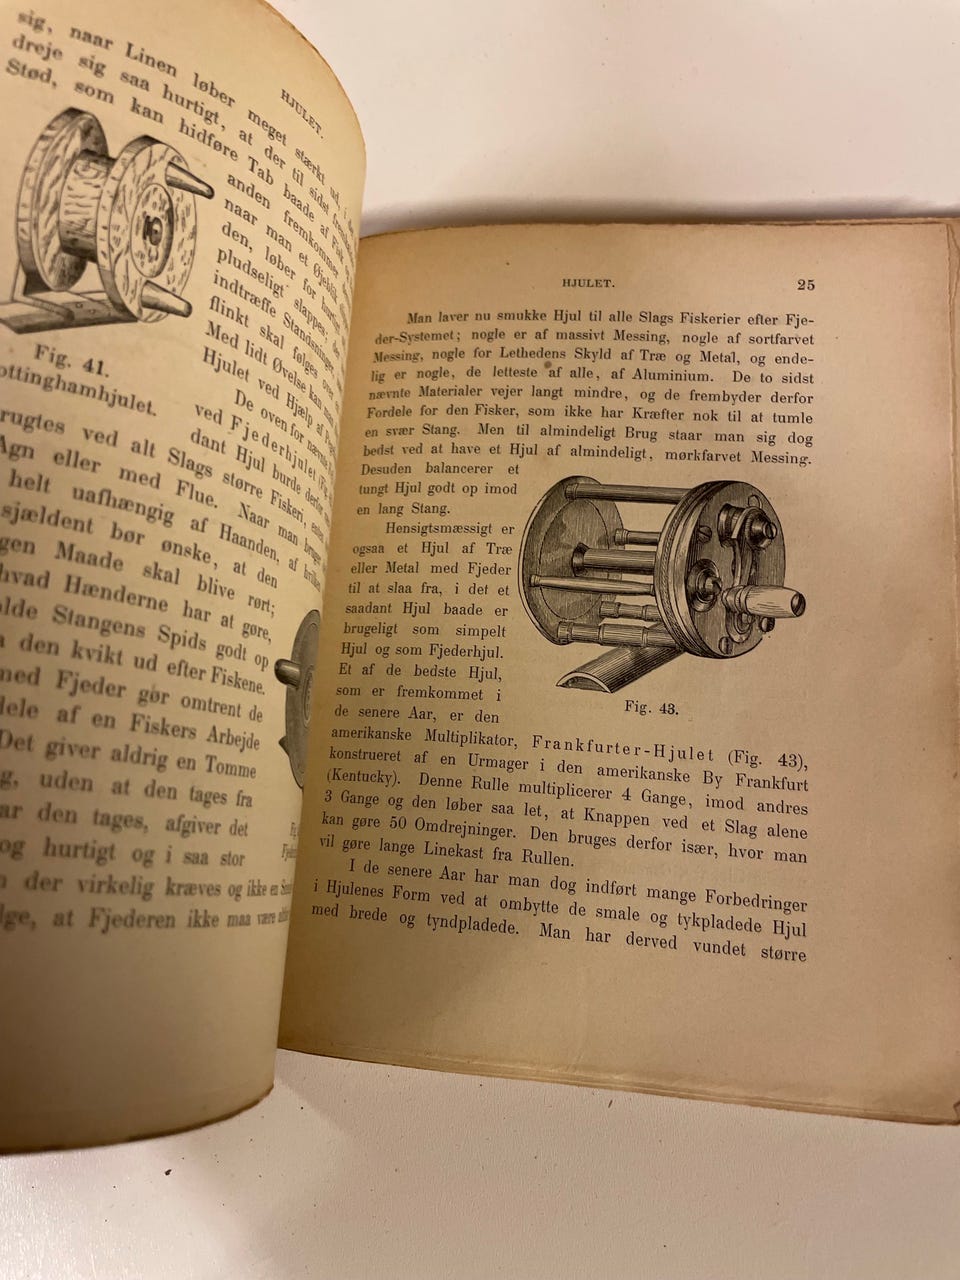 HJULET.
sig, naar Linen løber meget stærkt ud, i
dreje sig saa hurtigt, at der til sidst
Stød, som kan hidføre Tab baade af Fisk
anden fremkommer
naar man et Øjeblik
den, løber for hurtigt
pludseligt slappes; der
indtræffe Standsninger,
flinkt skal følges over
Med lidt Øvelse kan man
Hjulet ved Hjælp af
De oven for nævnte
ved Fjederhjulet (Fig.
dant Hjul burde derfor
Fig. 41.
ottinghamhjulet.
rugtes ved alt Slags større Fiskeri,
Agn eller med Flue. Naar man bruger
helt uafhængig af Haanden, af hvilken
sjældent bør ønske, at den
gen Maade skal blive rørt;
hvad Hænderne har at gøre,
olde Stangens Spids godt op
den kvikt ud efter Fiskene.
med Fjeder gør omtrent de
dele af en Fiskers Arbejde
Det giver aldrig en Tomme
g, uden at den tages fra
ar den tages, afgiver det
og hurtigt og i saa stor
der virkelig kræves og ikke en
lge, at Fjederen ikke maa være
HJULET. 25
Man laver nu smukke Hjul til alle Slags Fiskerier efter Fje-
der-Systemet; nogle er af massivt Messing, nogle af sortfarvet
Messing, nogle for Lethedens Skyld af Træ og Metal, og ende-
lig er nogle, de letteste af alle, af Aluminium. De to sidst
nævnte Materialer vejer langt mindre, og de frembyder derfor
Fordele for den Fisker, som ikke har Kræfter nok til at tumle
en svær Stang. Men til almindeligt Brug staar man sig dog
bedst ved at have et Hjul af almindeligt, mørkfarvet Messing.
Desuden balancerer et
tungt Hjul godt op imod
en lang Stang.
Hensigtsmæssigt er
ogsaa et Hjul af Træ
eller Metal med Fjeder
til at slaa fra, i det et
saadant Hjul baade er
brugeligt som simpelt
Hjul og som Fjederhjul.
Et af de bedste Hjul,
som er fremkommet i
de senere Aar, er den
Fig. 43.
amerikanske Multiplikator, Frankfurter-Hjulet (Fig. 43),
konstrueret af en Urmager i den amerikanske By Frankfurt
(Kentucky). Denne Rulle multiplicerer 4 Gange, imod andres
3 Gange og den løber saa let, at Knappen ved et Slag alene
kan gøre 50 Omdrejninger. Den bruges derfor især, hvor man
vil gøre lange Linekast fra Rullen.
I de senere Aar har man dog indført mange Forbedringer
i Hjulenes Form ved at ombytte de smale og tykpladede Hjul
med brede og tyndpladede. Man har derved vundet større